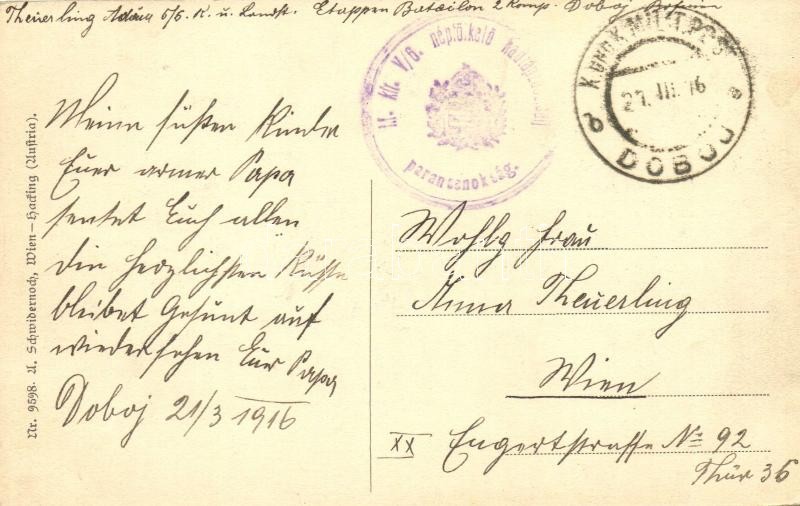 Theuerling Adam 6/5. K. u. Landst. Etappen Bataillon 2 Komp. Doboj Bosnien
M. kir. V/6. népfölkelő
parancsnokság.
K. UND K. MILIT. POST
21. III. 16
DOBOJ
Meine süßen Kinder
Euer armer Papa
sentet Euch allen
die herzlichsten Küsse
bleibet Gesunt auf
wiedersehen Eur Papa
Doboj 21/3 1916
Wohlg Frau
Anna Theuerling
Wien
XX Engertstrasse No 92
Thür 36
Nr. 9598. A. Schwidernoch, Wien—Hacking (Austria).